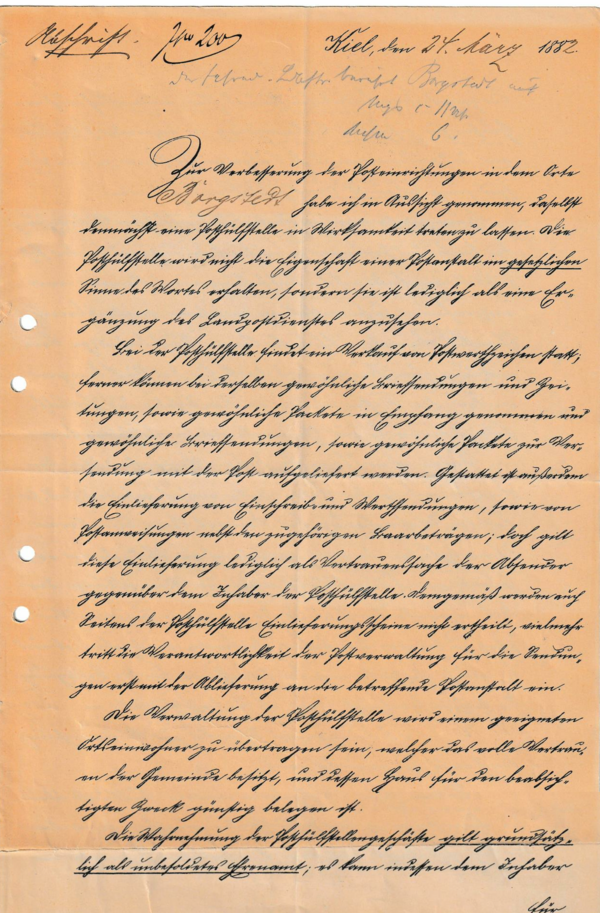 Abschrift. No 200 Kiel, den 24. März 1882.
Borgstedt
Zur Verbesserung der Posteinrichtungen in dem Orte
Borgstedt habe ich in Aussicht genommen, daselbst
demnächst eine Posthülfstelle in Wirksamkeit treten zu lassen. Die
Posthülfstelle wird nicht die Eigenschaft einer Postanstalt im gesetzlichen
Sinne des Wortes erhalten, sondern sie ist lediglich als eine Er-
gänzung des Landpostdienstes anzusehen.
Bei der Posthülfstelle findet ein Verkauf von Postwerthzeichen statt;
ferner können bei derselben gewöhnliche Briefsendungen und Zei-
tungen, sowie gewöhnliche Packete in Empfang genommen und
gewöhnliche Briefsendungen, sowie gewöhnliche Packete zur Ver-
sendung mit der Post aufgeliefert werden. Gestattet ist außerdem
die Einlieferung von Einschreib- und Werthsendungen, sowie von
Postanweisungen nebst den zugehörigen Baarbeträgen; doch gilt
diese Einlieferung lediglich als Vertrauenssache der Absender
gegenüber dem Inhaber der Posthülfstelle. Demgemäß werden auch
Seitens der Posthülfstelle Einlieferungsscheine nicht ertheilt, vielmehr
tritt die Verantwortlichkeit der Postverwaltung für die Sendun-
gen erst mit der Ablieferung an die betreffende Postanstalt ein.
Die Verwaltung der Posthülfstelle wird einem geeigneten
Ortseinwohner zu übertragen sein, welcher das volle Vertrau-
en der Gemeinde besitzt, und dessen Haus für den beabsich-
tigten Zweck günstig belegen ist.
Die Wahrnehmung der Posthülfstellengeschäfte gilt grundsätz-
lich als unbesoldetes Ehrenamt; es kann indessen dem Inhaber
für